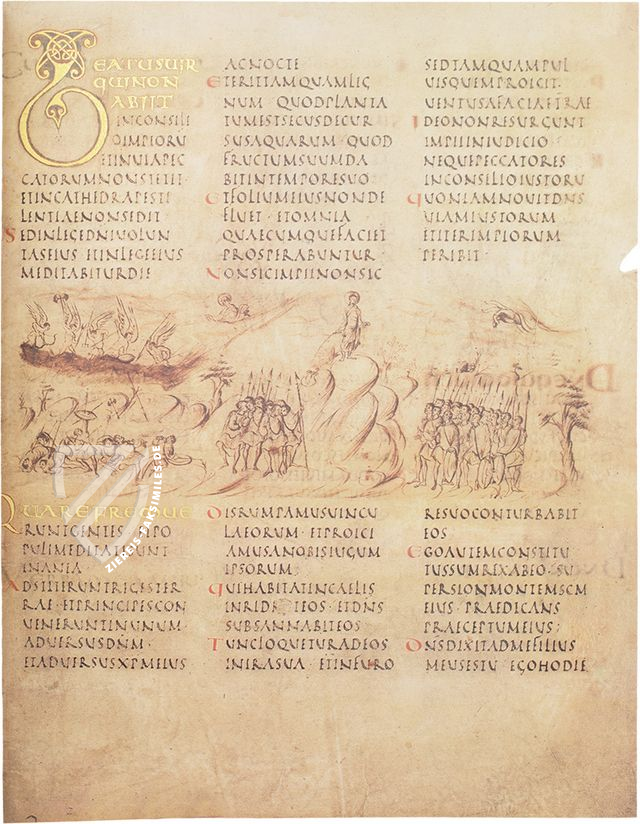 BEATUSUIR
QUINON
ABIIT
INCONSILI
OIMPIORU
ETINUIAPEC
CATORUMNONSTETIT·
ETINCATHEDRAPESTI
LENTIAENONSEDIT
SEDINLEGEDNIUOLUN
TASEIUS ETINLEGEEIUS
MEDITABITURDIE
ACNOCTE
ETERITTAMQUAMLIG
NUM · QUODPLANTA
TUMESTSECUSDECUR
SUSAQUARUM · QUOD
FRUCTUMSUUMDA
BITINTEMPORESUO
ETFOLIUMEIUSNONDE
FLUET · ETOMNIA
QUAECUMQUEFACIET
PROSPERABUNTUR·
NONSICIMPIINONSIC
SEDTAMQUAMPUL
UISQUEMPROICIT·
UENTUSAFACIAETRAE
IDEONONRESURGUNT
IMPIIINIUDICIO·
NEQUEPECCATORES
INCONSILIOIUSTORU
QUONIAMNOUITDNS
UIAMIUSTORUM
ETITERIMPIORUM
PERIBIT·
QUAREFREMUE
RUNTGENTES· ETPO
PULIMEDITATISUNT
INANIA·
ADSTITERUNTREGESTER
RAE· ETPRINCIPESCON
UENERUNTINUNUM·
ADUERSUSDNM·
ETADUERSUSXPMEIUS
DISRUMPAMUSUINCU
LAEORUM· ETPROICI
AMUSANOBISIUGUM
IPSORUM·
QUIHABITATINCAELIS
INRIDEBITEOS· ETDNS
SUBSANNABITEOS
TUNCLOQUETURADEOS
INIRASUA· ETINFURO
RESUOCONTURBABIT
EOS
EGOAUTEMCONSTITU
TUSSUMREXABEO· SU
PERSIONMONTEMSCM
EIUS· PRAEDICANS
PRAECEPTUMEIUS·
DNSDIXITADMEFILIUS
MEUSESTU· EGOHODIE
ZIEREIS-FACSIMILES.DE